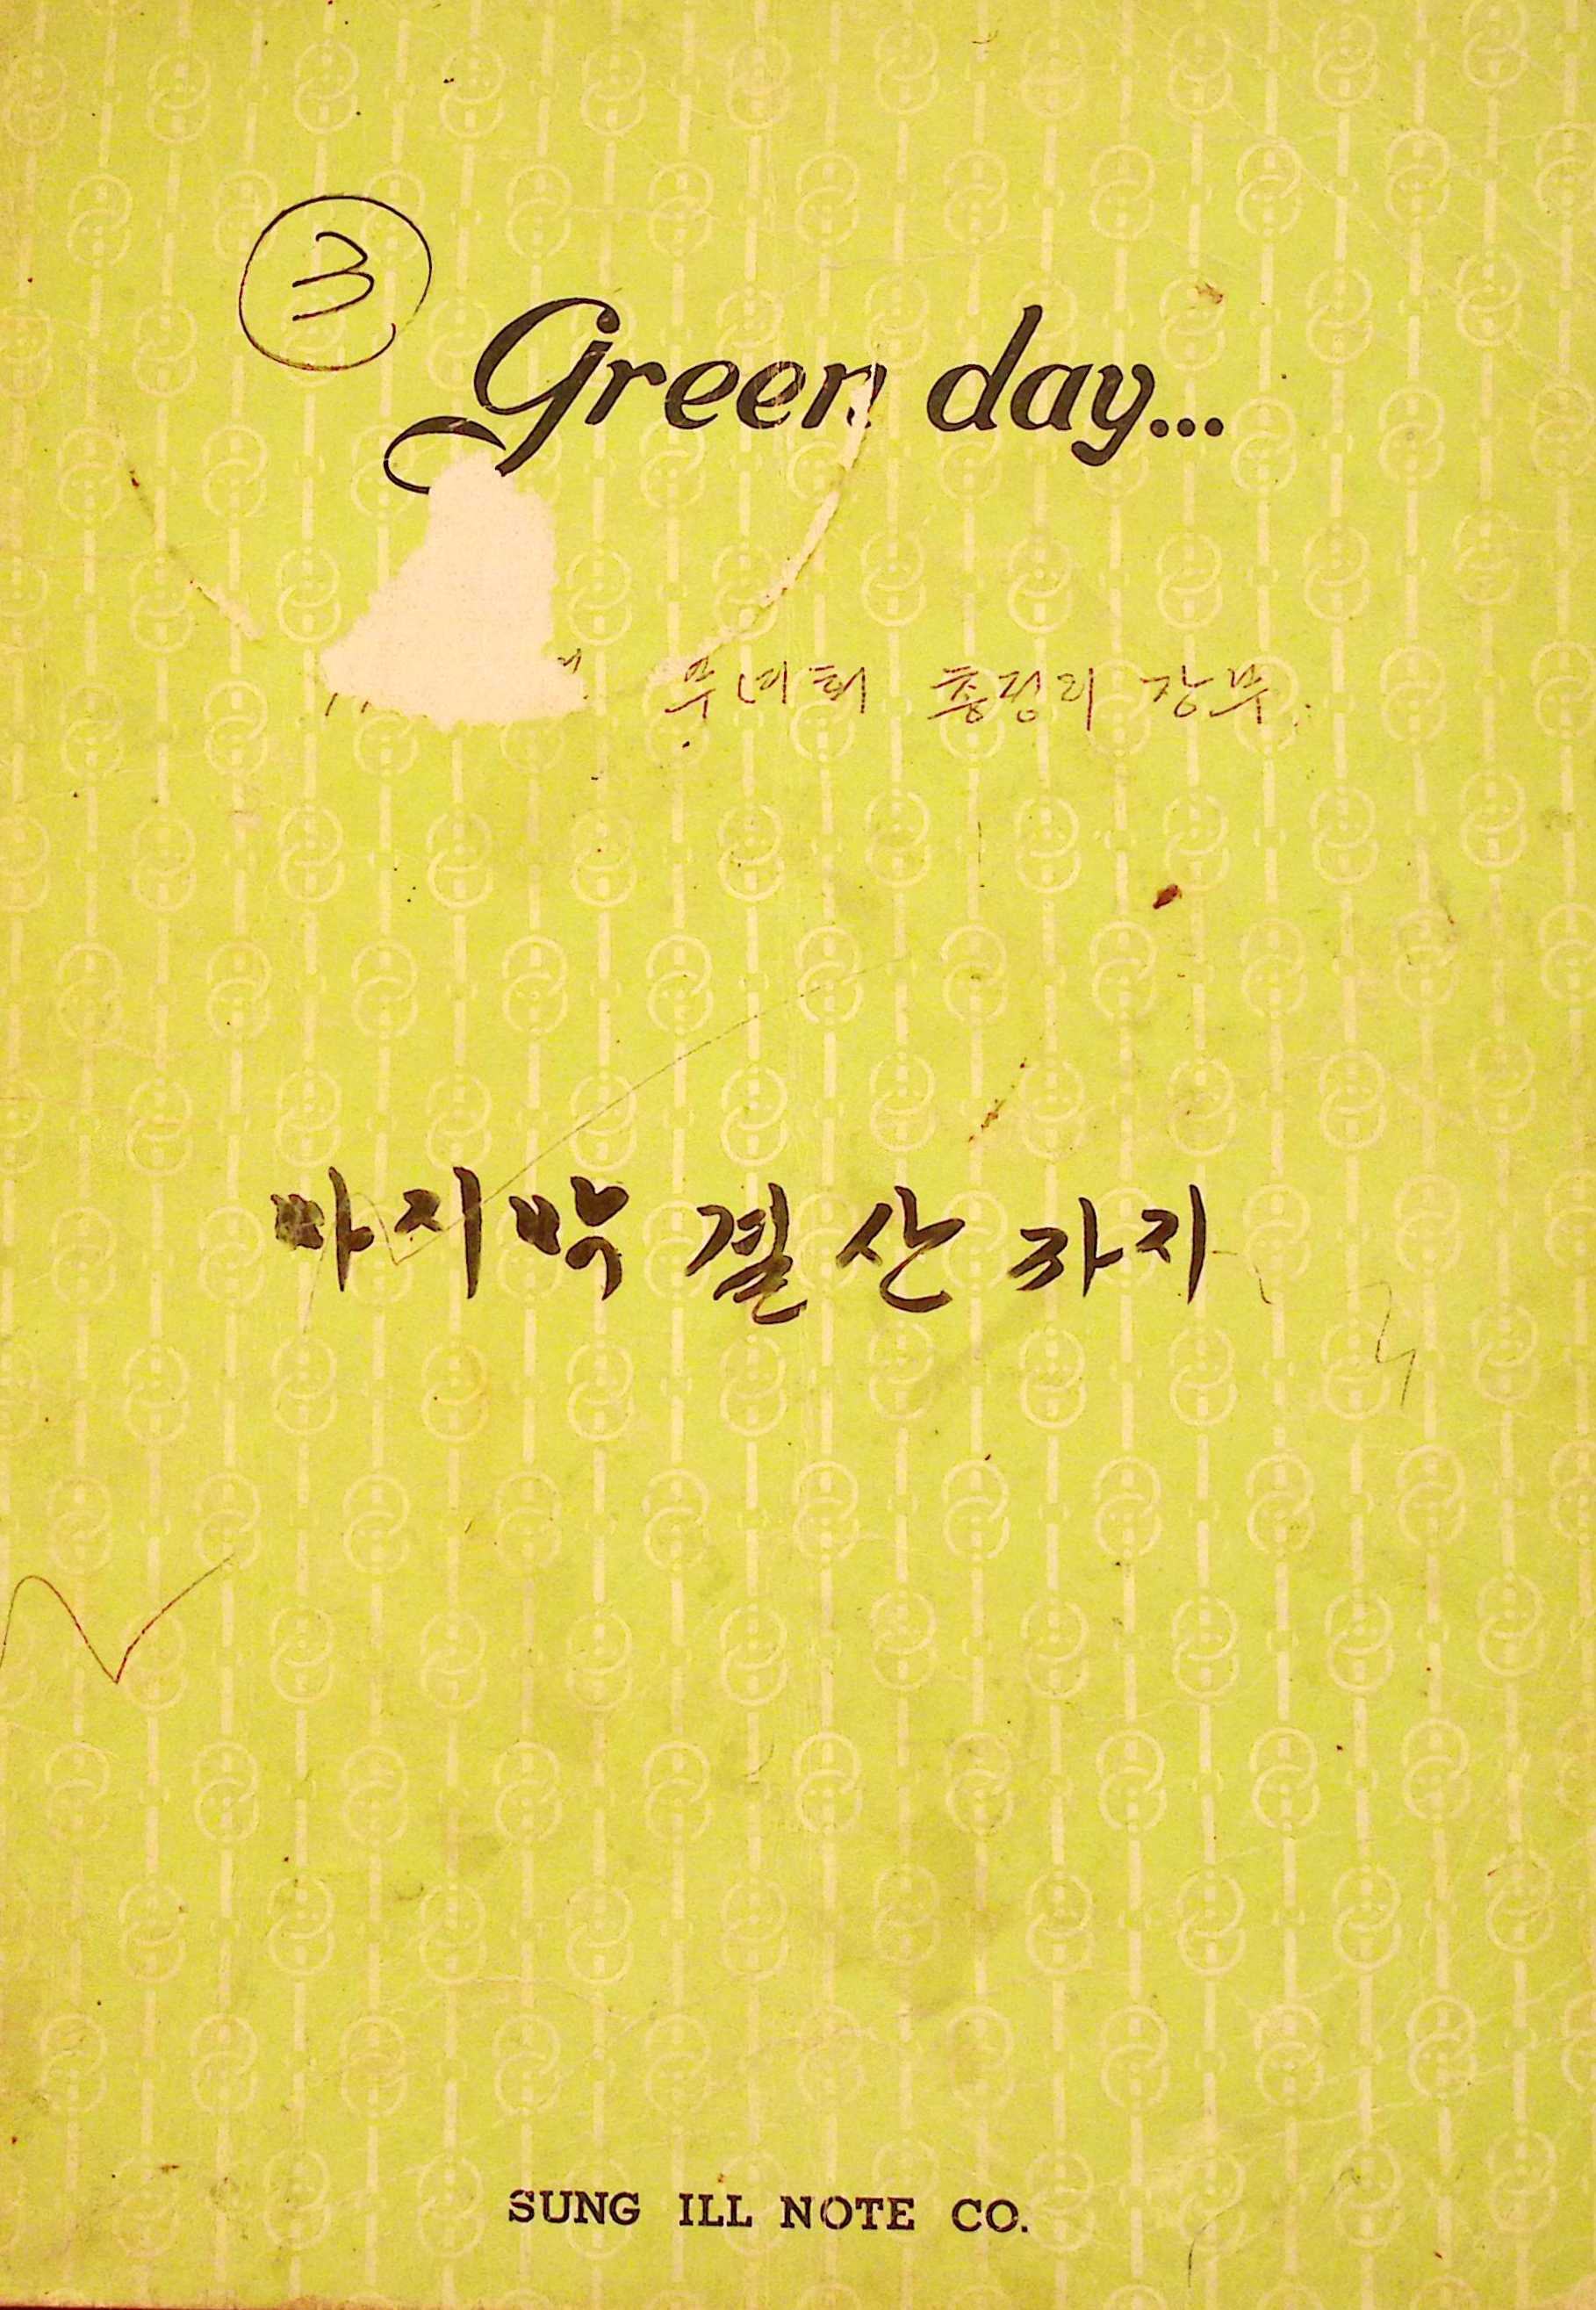 ③
Green day...
부녀회 총정리 장부
마지막 결산까지
SUNG ILL NOTE CO.